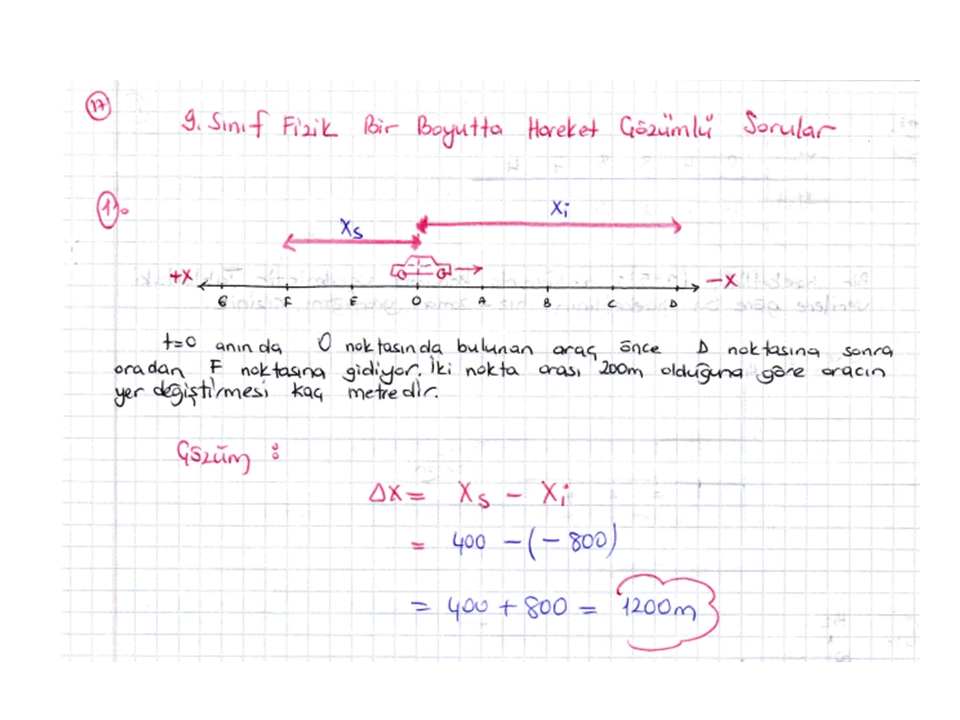 17
9. Sınıf Fizik Bir Boyutta Hareket Çözümlü Sorular
1.
Xs Xi
+X -X
G F E O A B C D
t=0 anında O noktasında bulunan araç önce D noktasına sonra
oradan F noktasına gidiyor. İki nokta arası 200m olduğuna göre aracın
yer değiştirmesi kaç metredir.
Çözüm :
ΔX = Xs - Xi
= 400 -(- 800)
= 400 + 800 = 1200m